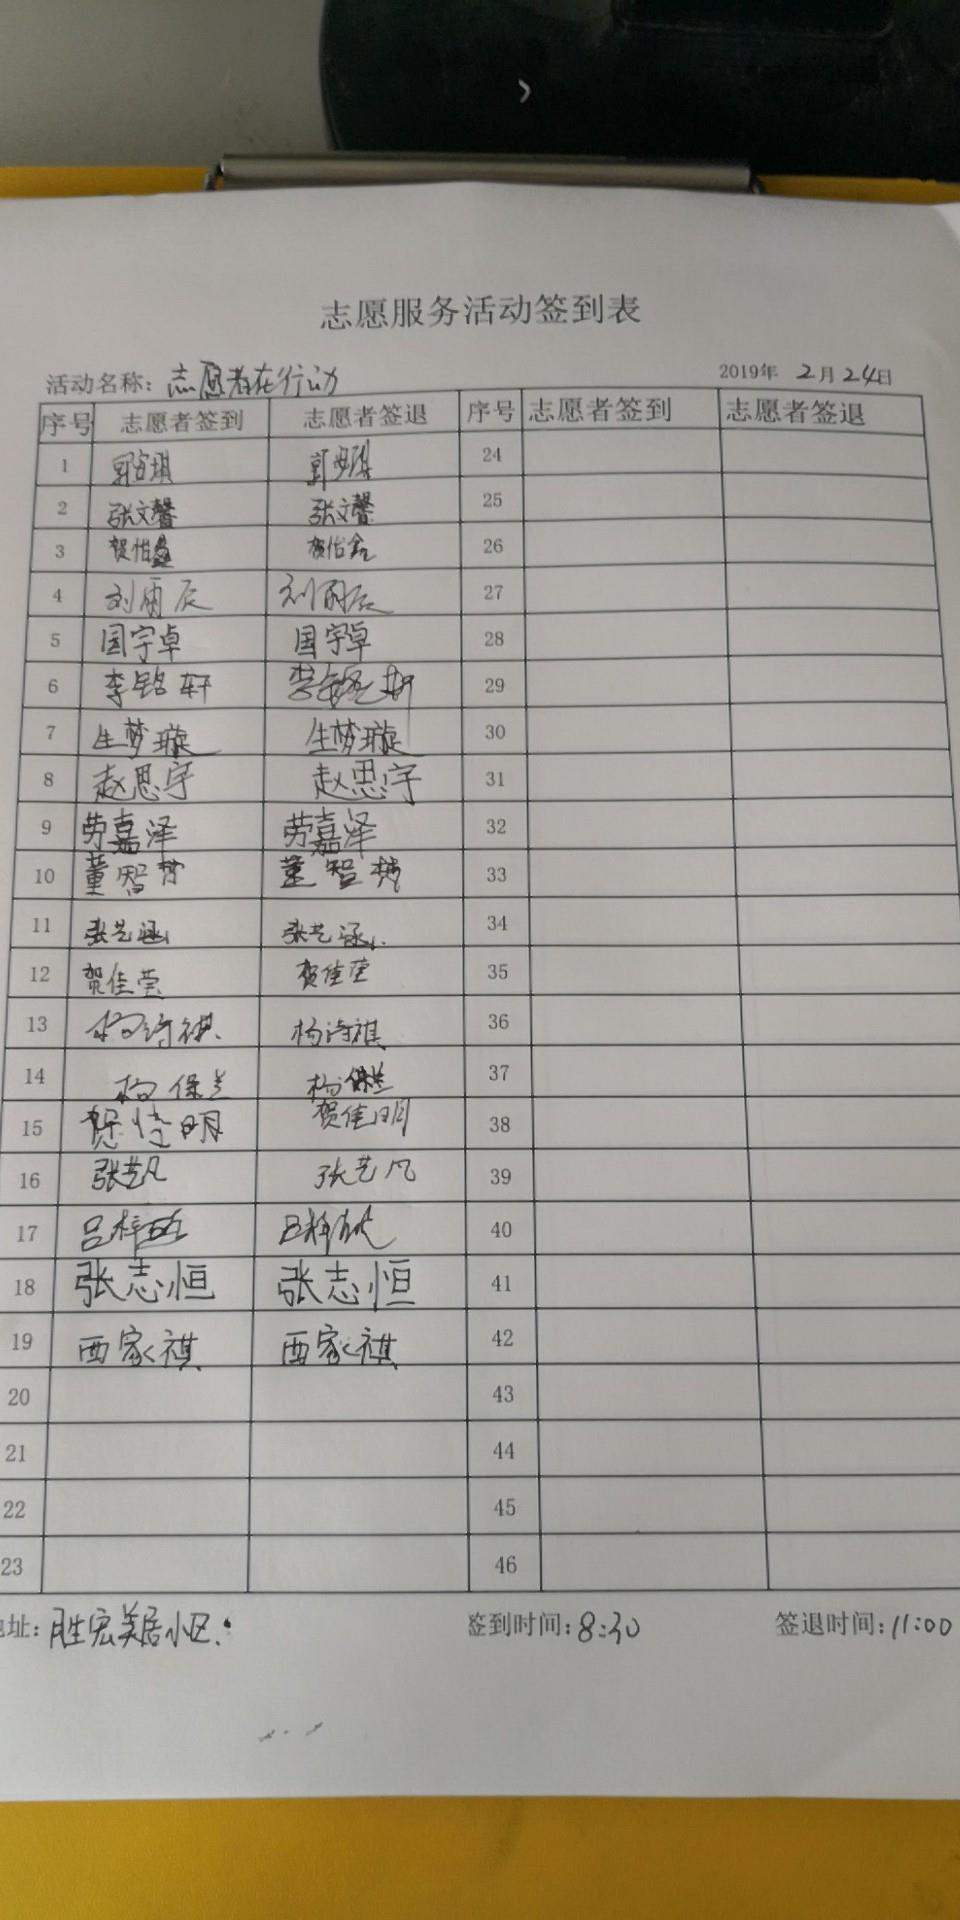 志愿服务活动签到表
活动名称：志愿者在行动 2019年 2月24日
序号 志愿者签到 志愿者签退 序号 志愿者签到 志愿者签退
1 24
2 张文馨 张文馨 25
3 贺怡鑫 贺怡鑫 26
4 刘雨辰 刘雨辰 27
5 国宇卓 国宇卓 28
6 李铭轩 李铭轩 29
7 生梦璇 生梦璇 30
8 赵思宇 赵思宇 31
9 劳嘉泽 劳嘉泽 32
10 董智 董智 33
11 张艺涵 张艺涵 34
12 贺佳莹 贺佳莹 35
13 杨诗祺 杨诗祺 36
14 杨保兰 杨保兰 37
15 贺佳明 贺佳明 38
16 张艺凡 张艺凡 39
17 吕梓 吕梓 40
18 张志恒 张志恒 41
19 西家祺 西家祺 42
20 43
21 44
22 45
23 46
址：胜宏美居小区. 签到时间：8:30 签退时间：11:00